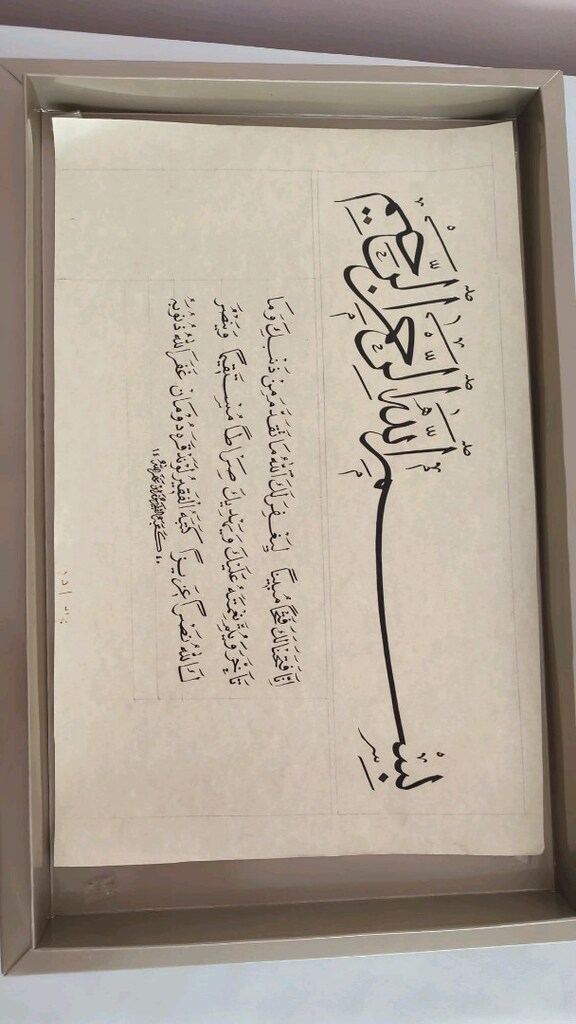 بِسْمِ اللّٰهِ الرَّحْمٰنِ الرَّحِيمِ
اِنَّا فَتَحْنَا لَكَ فَتْحًا مُبِينًا لِيَغْفِرَ لَكَ اللّٰهُ مَا تَقَدَّمَ مِنْ ذَنْبِكَ وَمَا
تَاَخَّرَ وَيُتِمَّ نِعْمَتَهُ عَلَيْكَ وَيَهْدِيَكَ صِرَاطًا مُسْتَقِيمًا وَيَنْصُرَ
كَ اللّٰهُ نَصْرًا عَزِيزًا كَتَبَهُ الْفَقِيرُ غَفَرَ اللّٰهُ ذُنُوبَهُ